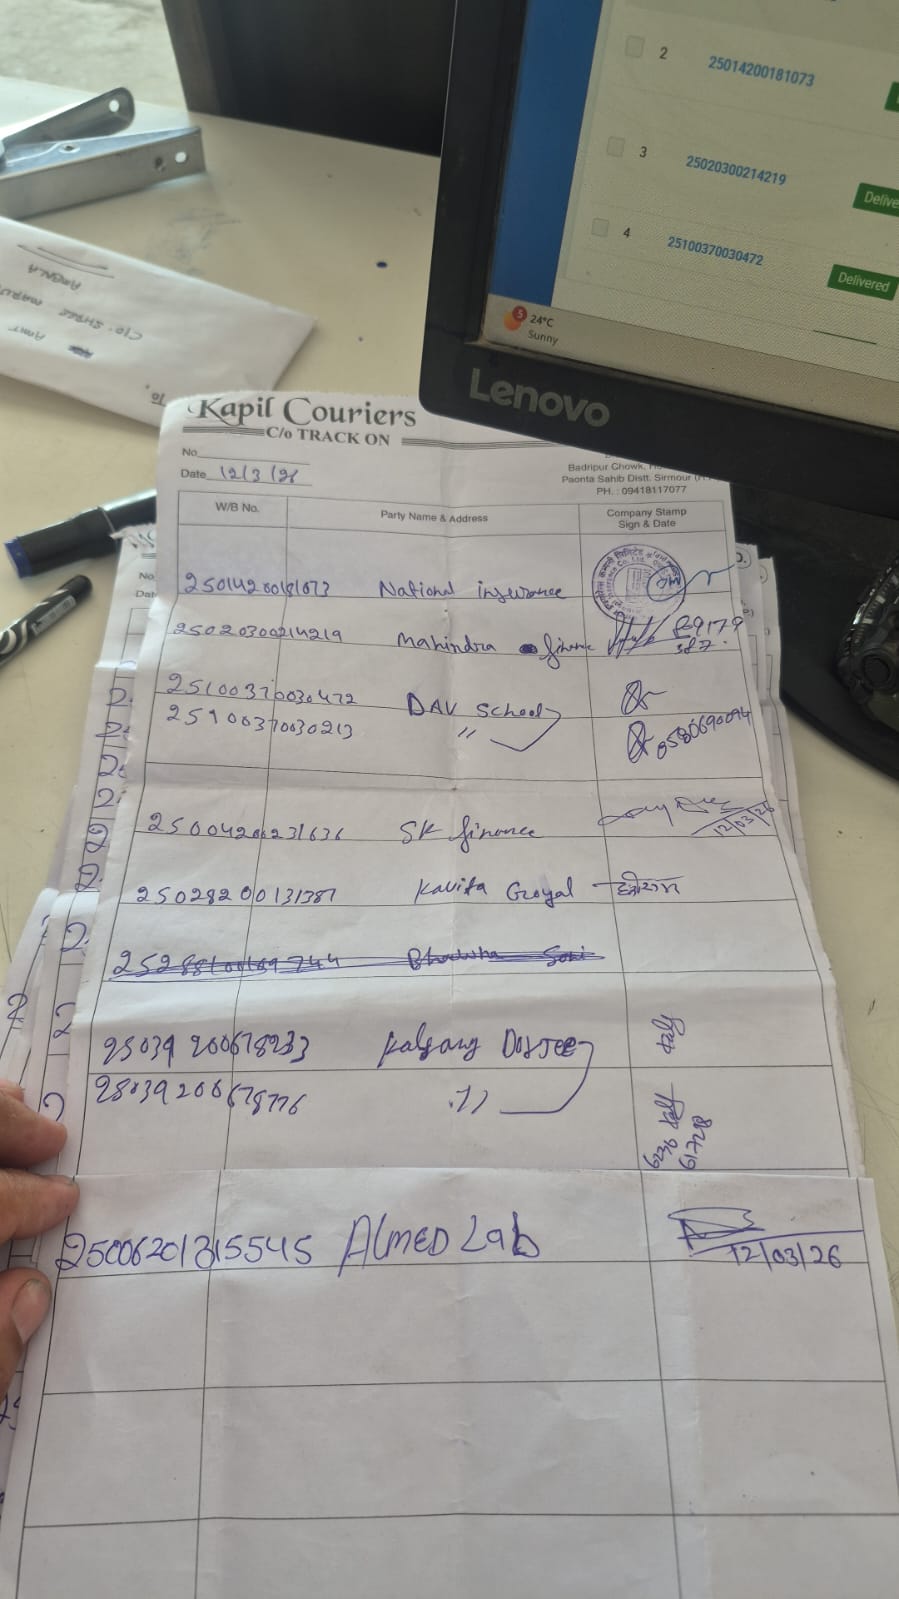 2 25014200181073
3 25020300214219
Delive
4 25100370030472
Delivered
5
24°C
Sunny
Lenovo
To,
AMIT
C/O. SHREE MARU
AMBALA
Kapil Couriers
C/o TRACK ON
No
Date 12/3/26
Badripur Chowk,
Paonta Sahib Distt. Sirmour
PH. : 09418117077
W/B No. Party Name & Address Company Stamp
Sign & Date
25014200181073 National insurance
25020300214219 Mahindra finance
25100370030472 DAV School
25100370030213 "
8580690094
25004206231636 SK finance
12/03/26
25028200131387 Kavita Goyal
Bhawna Soni
25039200678233 Kalsang Dorjee
25039200678776 "
25006201315545 Almed Lab
12/03/26